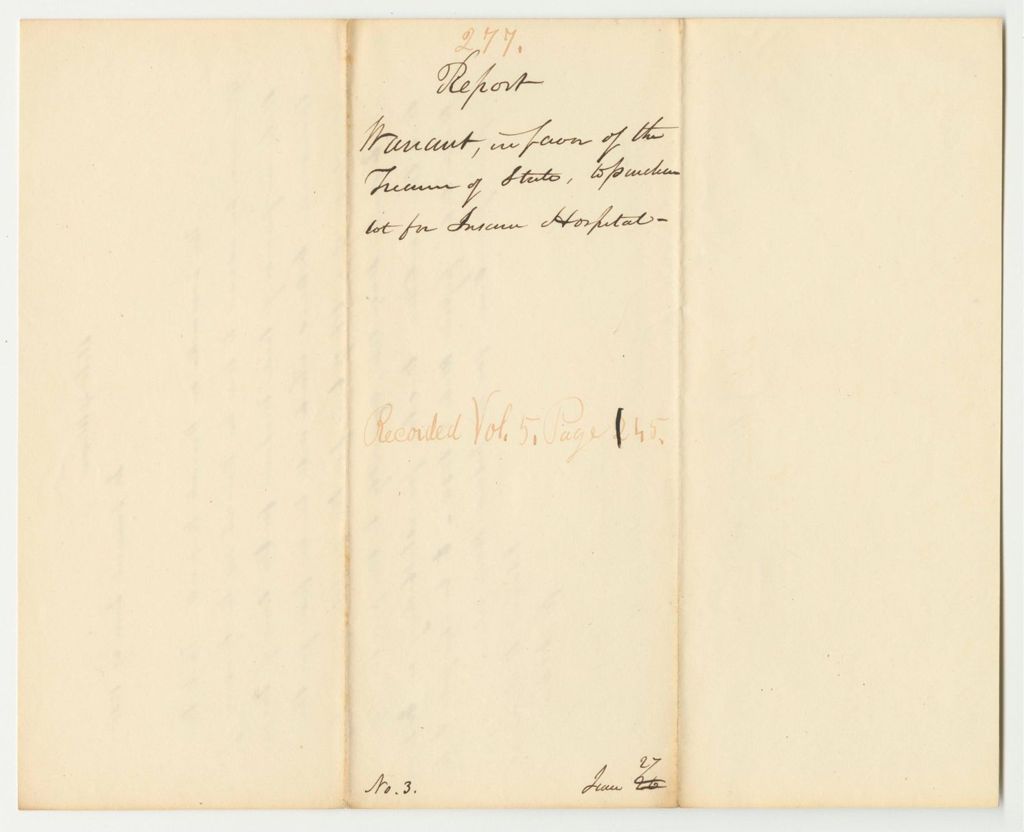 277.
Report
Warrant, in favor of the
Treasurer of State, to purchase
lot for Insane Hospital-
Recorded Vol. 5. Page 145.
No. 3.
June 27